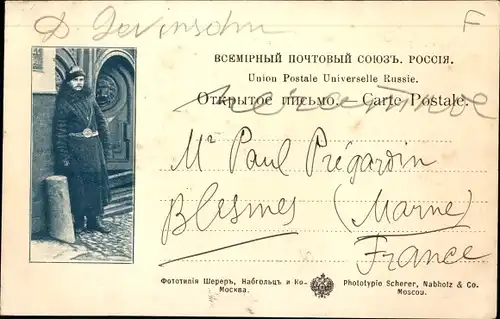 F
ВСЕМІРНЫЙ ПОЧТОВЫЙ СОЮЗЪ. РОССІЯ.
Union Postale Universelle Russie.
Открытое письмо. — Carte Postale.
Mr Paul Prégardin
Blesmes (Marne)
France
Фототипія Шереръ, Набгольцъ и Ко.
Москва.
Phototypie Scherer, Nabholz & Co.
Moscou.